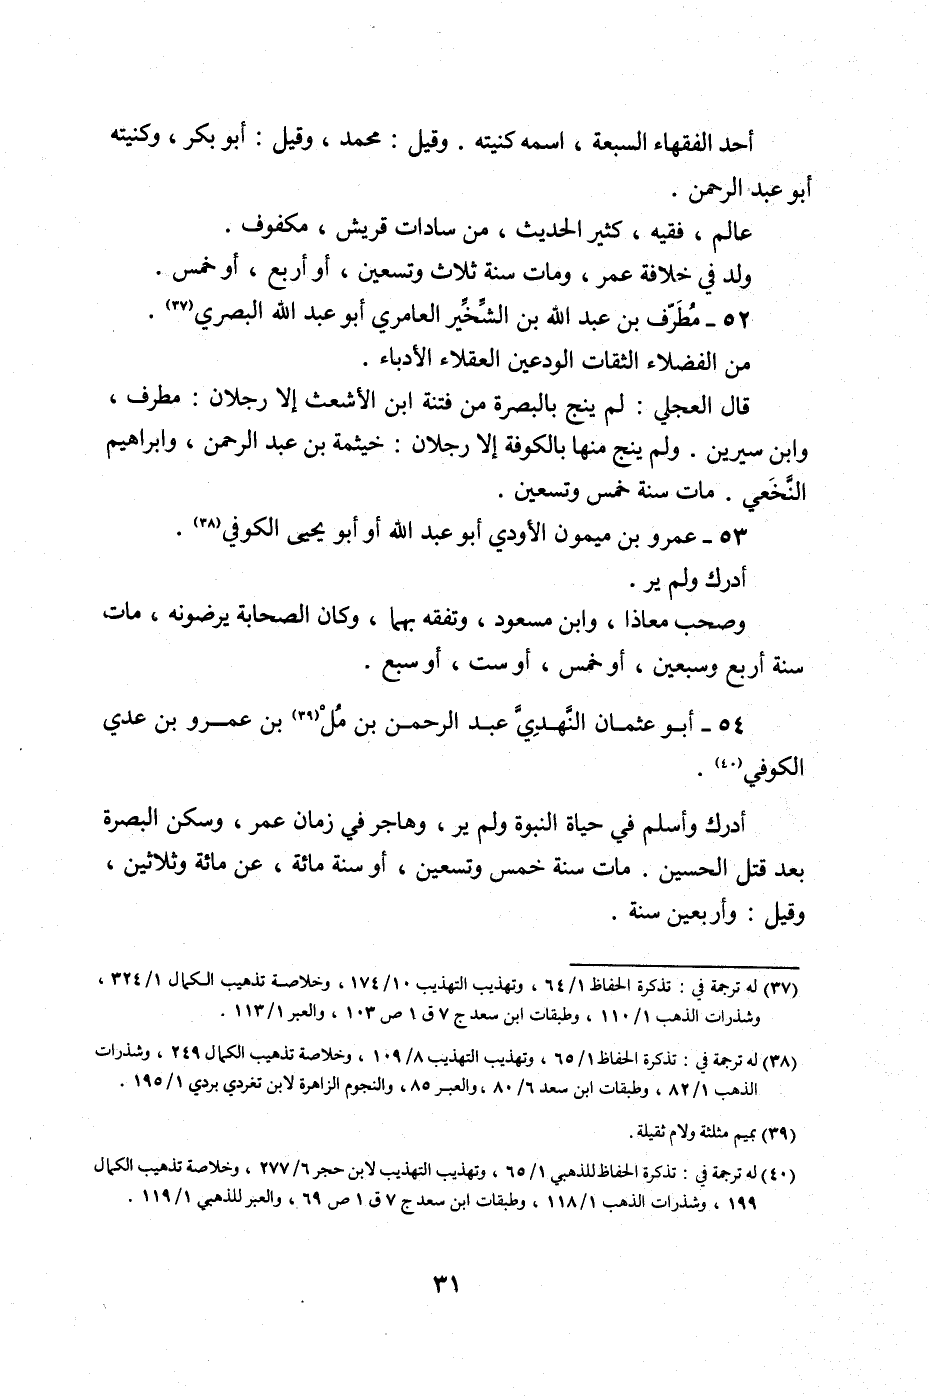 أحد الفقهاء السبعة ، اسمه كنيته . وقيل : محمد ، وقيل : أبو بكر ، وكنيته
أبو عبد الرحمن .
عالم ، فقيه ، كثير الحديث ، من سادات قريش ، مكفوف .
ولد في خلافة عمر ، ومات سنة ثلاث وتسعين ، أو أربع ، أو خمس .
٥٢ ـ مُطَرِّف بن عبد الله بن الشِّخِّير العامري أبو عبد الله البصري(٣٧) .
من الفضلاء الثقات الودعين العقلاء الأدباء .
قال العجلي : لم ينج بالبصرة من فتنة ابن الأشعث إلا رجلان : مطرف ،
وابن سيرين . ولم ينج منها بالكوفة إلا رجلان : خيثمة بن عبد الرحمن ، وابراهيم
النَّخَعي . مات سنة خمس وتسعين .
٥٣ ـ عمرو بن ميمون الأودي أبو عبد الله أو أبو يحيى الكوفي(٣٨) .
أدرك ولم ير .
وصحب معاذا ، وابن مسعود ، وتفقه بهما ، وكان الصحابة يرضونه ، مات
سنة أربع وسبعين ، أو خمس ، أو ست ، أو سبع .
٥٤ ـ أبو عثمان النَّهدِيَّ عبد الرحمن بن مُلْ(٣٩) بن عمرو بن عدي
الكوفي(٤٠) .
أدرك وأسلم في حياة النبوة ولم ير ، وهاجر في زمان عمر ، وسكن البصرة
بعد قتل الحسين . مات سنة خمس وتسعين ، أو سنة مائة ، عن مائة وثلاثين ،
وقيل : وأربعين سنة .
(٣٧) له ترجمة في : تذكرة الحفاظ ٦٤/١ ، وتهذيب التهذيب ١٧٤/١٠ ، وخلاصة تذهيب الكمال ٣٢٤/١ ،
وشذرات الذهب ١١٠/١ ، وطبقات ابن سعد ج ٧ ق ١ ص ١٠٣ ، والعبر ١١٣/١ .
(٣٨) له ترجمة في : تذكرة الحفاظ ٦٥/١ ، وتهذيب التهذيب ١٠٩/٨ ، وخلاصة تذهيب الكمال ٢٤٩ ، وشذرات
الذهب ٨٢/١ ، وطبقات ابن سعد ٨٠/٦ ، والعبر ٨٥ ، والنجوم الزاهرة لابن تغردي بردي ١٩٥/١ .
(٣٩) بميم مثلثة ولام ثقيلة .
(٤٠) له ترجمة في : تذكرة الحفاظ للذهبي ٦٥/١ ، وتهذيب التهذيب لابن حجر ٢٧٧/٦ ، وخلاصة تذهيب الكمال
١٩٩ ، وشذرات الذهب ١١٨/١ ، وطبقات ابن سعد ج ٧ ق ١ ص ٦٩ ، والعبر للذهبي ١١٩/١ .
٣١